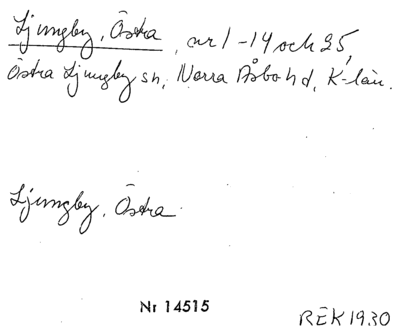 Ljungby, Östra, nr 1-14 och 25,
Östra Ljungby sn, Norra Åsbo hd, K-län.
Ljungby, Östra
Nr 14515
REK 1930